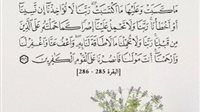 مَا كَسَبَتْ وَعَلَيْهَا مَا ٱكْتَسَبَتْ رَبَّنَا لَا تُؤَاخِذْنَآ إِن نَّسِينَآ
أَوْ أَخْطَأْنَا رَبَّنَا وَلَا تَحْمِلْ عَلَيْنَآ إِصْرًا كَمَا حَمَلْتَهُۥ عَلَى ٱلَّذِينَ
مِن قَبْلِنَا رَبَّنَا وَلَا تُحَمِّلْنَا مَا لَا طَاقَةَ لَنَا بِهِۦ وَٱعْفُ عَنَّا وَٱغْفِرْ لَنَا
وَٱرْحَمْنَآ أَنتَ مَوْلَىٰنَا فَٱنصُرْنَا عَلَى ٱلْقَوْمِ ٱلْكَٰفِرِينَ
[البقرة 285 - 286]